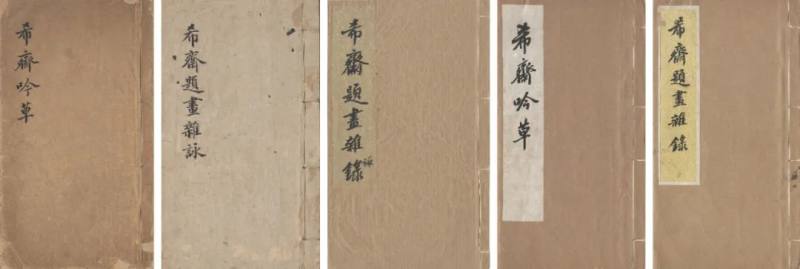 希齋吟草
希齋題畫雜詠
希齋題畫雜錄
希齋吟草
希齋題畫雜錄